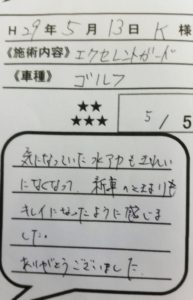 H 29年 5月 13日 K 様
《施術内容》 エクセレントガード
《車種》 ゴルフ
★★
★★★
5 / 5
気になっていた水アカもきれい
になくなって、新車のときよりも
キレイになったように感じま
した。
ありがとうございました。